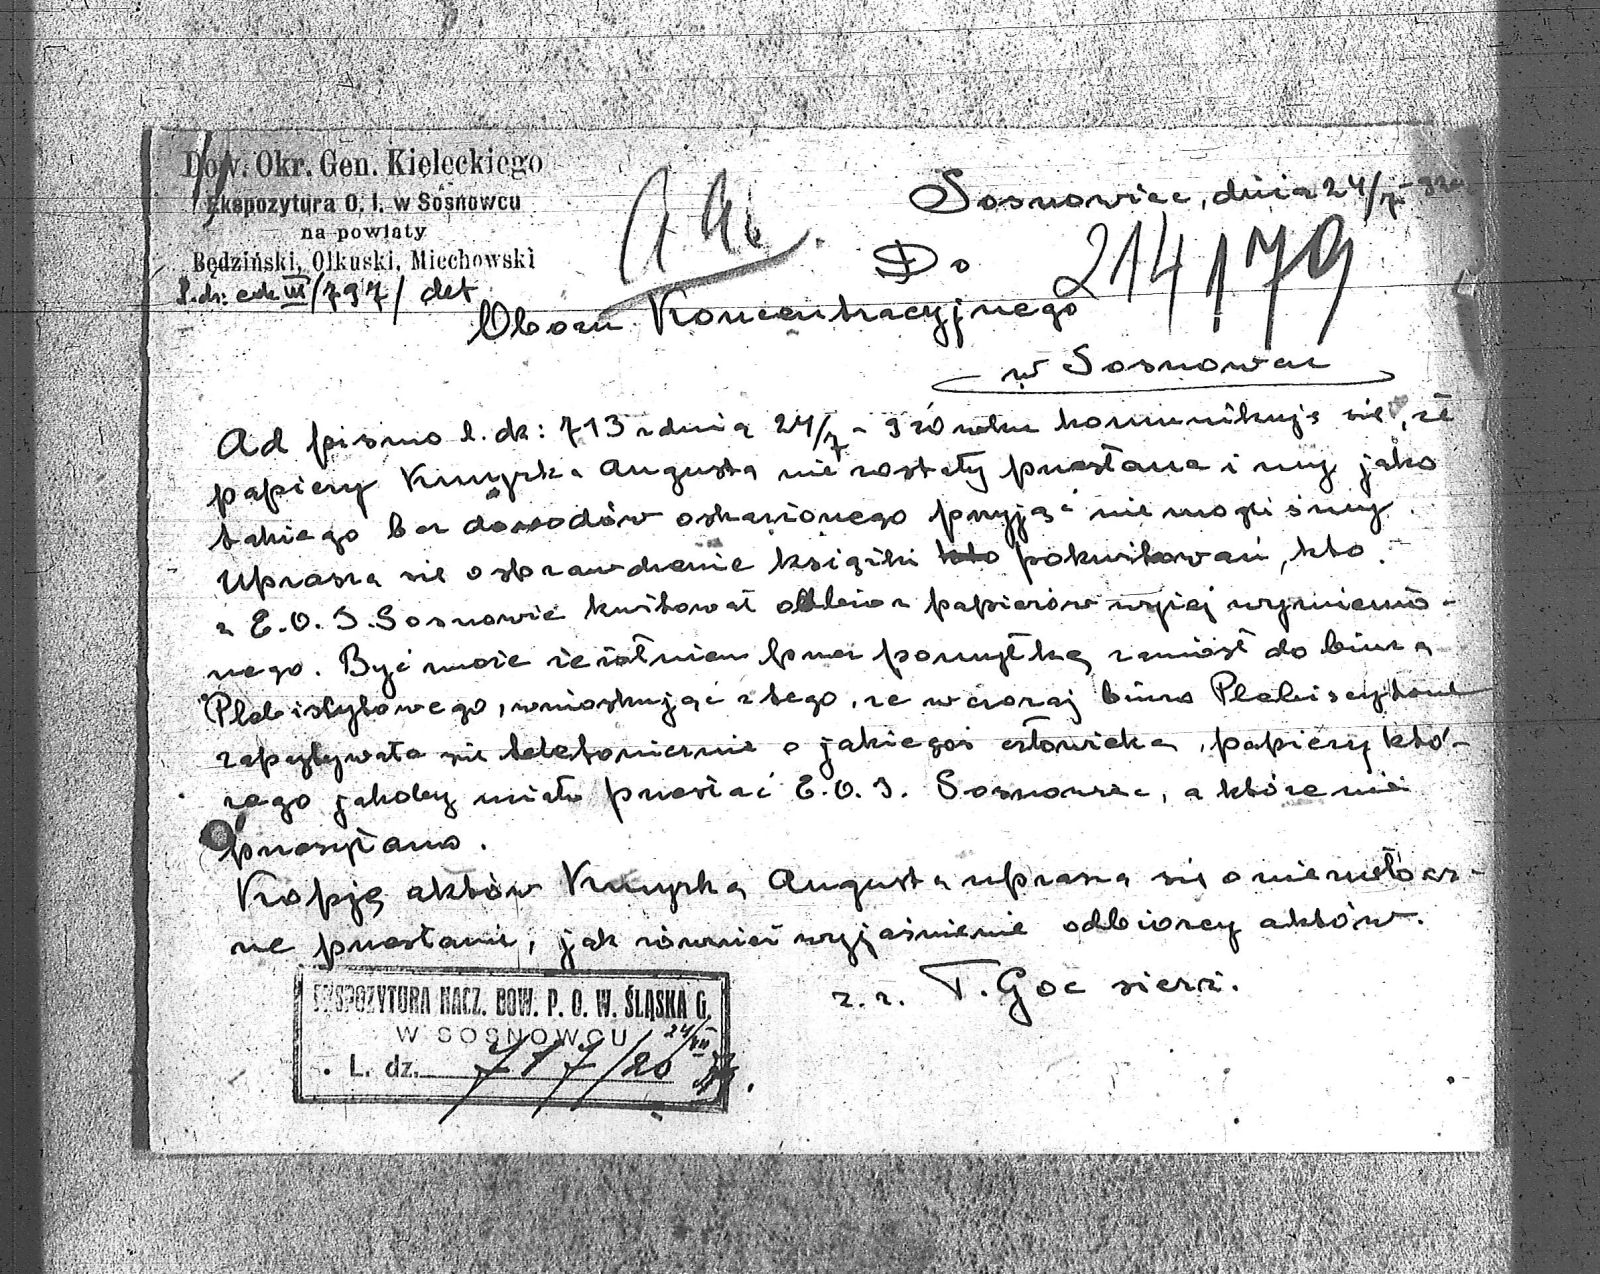 Dow. Okr. Gen. Kieleckiego
Ekspozytura O. I. w Sosnowcu
na powiaty
Będziński, Olkuski, Miechowski
L.dz: eck III/797/ det
Sosnowiec, dnia 24/7 - 920
Do
214/79
Obozu Koncentracyjnego
w Sosnowcu
Ad pismo l. dz: 713 z dnia 24/7 - 920 roku komunikuję się, że
papiery Kmyrka Augusta nie zostały przesłane i my jako
takiego bez dowodów oskarżonego przyjąć nie mogliśmy.
Uprasza się o sprawdzenie książki pokwitowań, kto
z E.O.I. Sosnowic kwitował odbiór papierów wyżej wymienio-
nego. Być może że żołnierz przez pomyłkę zaniósł do biura
Plebistytowego, wnioskując z tego, że wczoraj biuro Plebiscytowe
zapytywało się telefonicznie o jakiegoś człowieka, papiery któ-
rego jakoby miało przesłać E.O.I. Sosnowiec, a które nie
przesyłano.
Kopję aktów Kmyrka Augusta uprasza się o niezwłocz-
ne przesłanie, jak również wyjaśnienie odbiorcy aktów.
z. z. T. Goc sierż.
EKSPOZYTURA NACZ. DOW. P. O. W. ŚLĄSKA G.
W SOSNOWCU 24/VII
L. dz. 717/20